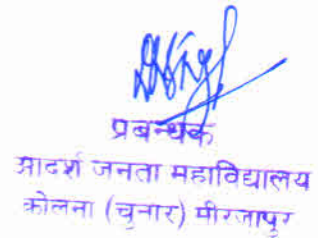 प्रबन्धक
आदर्श जनता महाविद्यालय
कोलना (चुनार) मीरजापुर